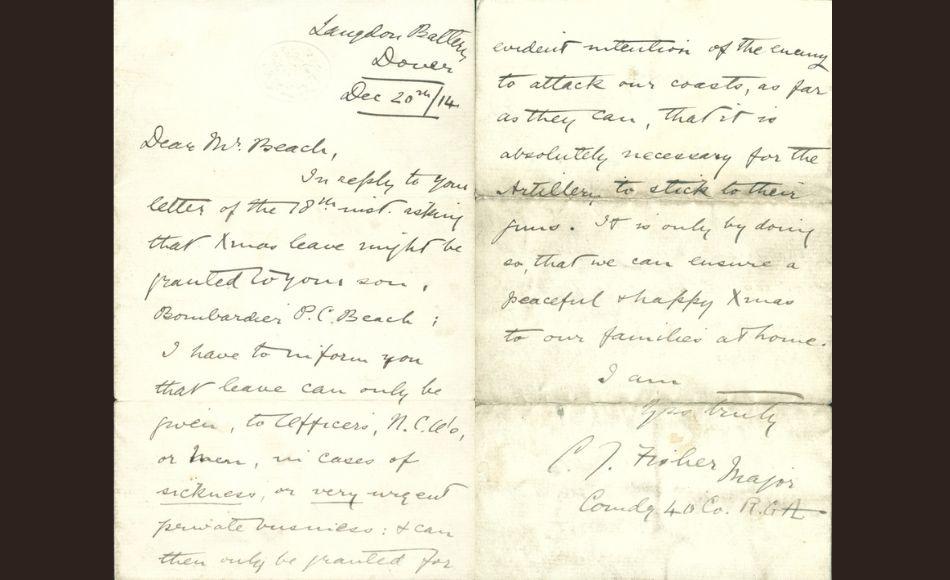 Langdon Battery
Dover
Dec 20th/14
Dear Mr. Beach,
In reply to your
letter of the 18th inst. asking
that Xmas leave might be
granted to your son,
Bombardier P.C. Beach ;
I have to inform you
that leave can only be
given, to Officers, N.C.O's,
or Men, in cases of
sickness, or very urgent
private business : & can
then only be granted for
evident intention of the enemy
to attack our coasts, as far
as they can, that it is
absolutely necessary for the
Artillery to stick to their
guns. It is only by doing
so, that we can ensure a
peaceful & happy Xmas
to our families at home.
I am
Yrs truly
C. J. Fisher Major
Comdg 40 Co. R.G.A.